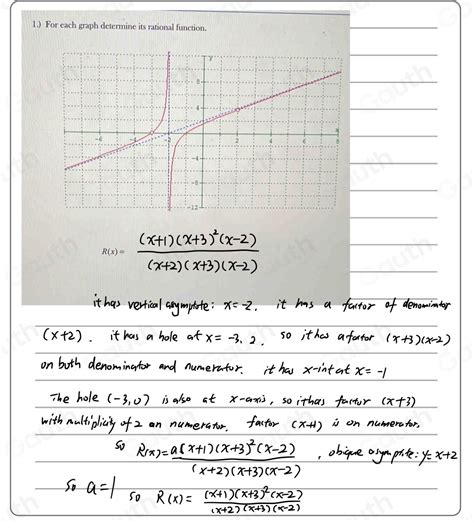 1.) For each graph determine its rational function.
y
8
4
-6
-4
-2
2
4
6
8
-4
-8
-12
R(x) = (x+1)(x+3)²(x-2) / (x+2)(x+3)(x-2)
it has vertical asymptote: x=-2. it has a factor of denominator
(x+2). it has a hole at x = -3, 2. so it has a factor (x+3)(x-2)
on both denominator and numerator. it has x-int at x = -1
The hole (-3,0) is also at x-axis, so it has factor (x+3)
with multiplicity of 2 on numerator. factor (x+1) is on numerator.
so R(x) = a(x+1)(x+3)²(x-2) / (x+2)(x+3)(x-2), obique asymptote: y=x+2
so a=1 so R(x) = (x+1)(x+3)²(x-2) / (x+2)(x+3)(x-2)
Gauth